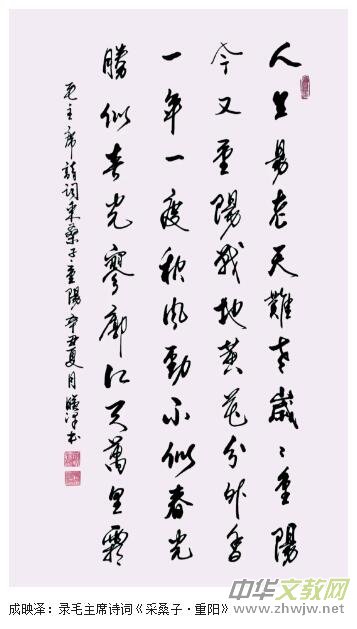 人生易老天難老歲〻重陽
今又重陽戰地黃花分外香
一年一度秋風勁不似春光
勝似春光寥廓江天萬里霜
毛主席詩詞采桑子·重陽辛丑夏月映澤书
成映泽：录毛主席诗词《采桑子·重阳》
中华文教网
www.zhwjw.net